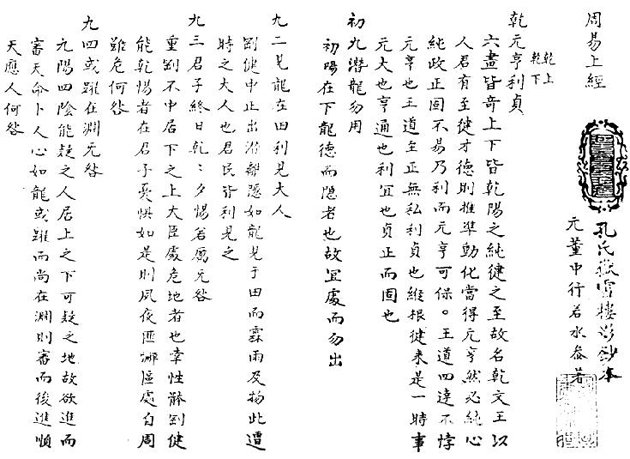 周易上經
孔氏嶽雪樓影鈔本
元董中行若水叅著
乾上
乾下
乾元亨利貞
六畫皆奇上下皆乾陽之純徤之至故名乾文王以
人君有至徤才德則推準動化當得元亨然必純心
純政正固不易乃利而元亨可保。王道四達不悖
元亨也王道至正無私利貞也維根徤来是一時事
元大也亨通也利宜也貞正而固也
初九潛龍勿用
初陽在下龍德而隱者也故宜處而勿出
九二見龍在田利見大人
剛健中正出治離隱如龍見于田而霖雨及物此遭
時之大人也君民皆利見之
九三君子終日乾乾夕惕若厲无咎
重剛不中居下之上大臣處危地者也幸性體剛健
能乾惕者在君子憂惧如是則夙夜匪懈區處自周
雖危何咎
九四或躍在淵无咎
九陽四陰能疑之人居上之下可疑之地故欲進而
審天命卜人心如龍或躍而尚在淵則審而後進順
天應人何咎